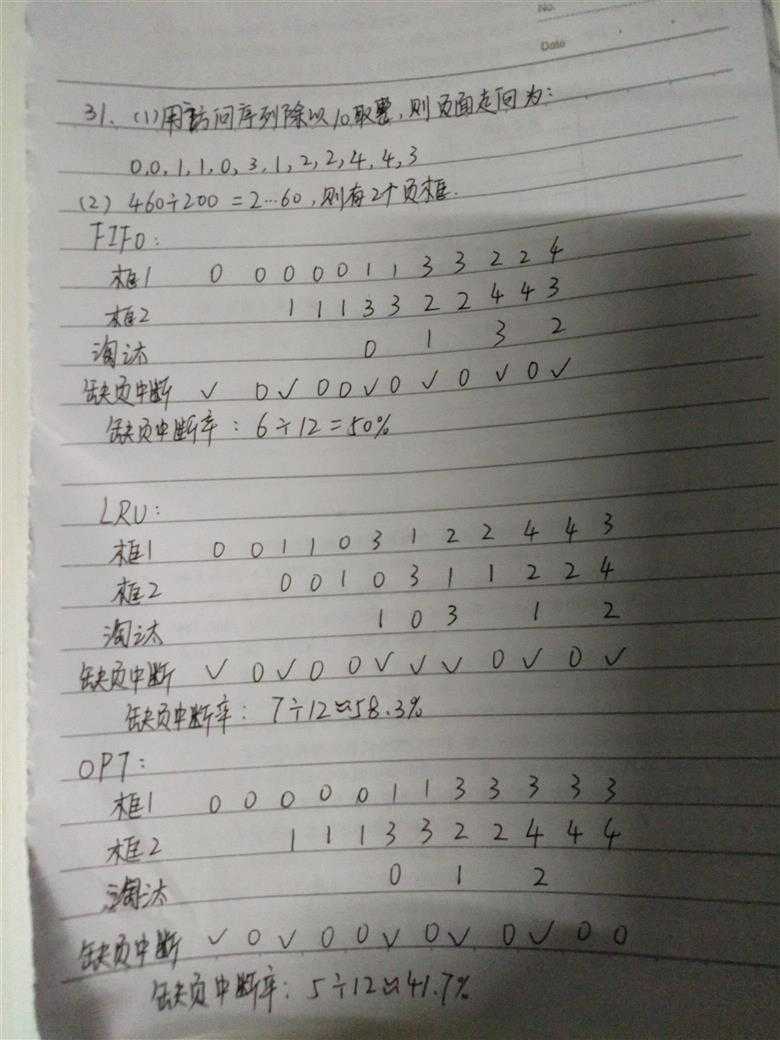 No.
Date
31. (1)用访问序列除以10取整,则页面走向为:
0,0,1,1,0,3,1,2,2,4,4,3
(2) 460÷200=2…60,则有2个页框.
FIFO:
框1 0 0 0 0 0 1 1 3 3 2 2 4
框2 1 1 1 3 3 2 2 4 4 3
淘汰 0 1 3 2
缺页中断 ✓ 0 ✓ 0 0 ✓ 0 ✓ 0 ✓ 0 ✓
缺页中断率: 6÷12=50%
LRU:
框1 0 0 1 1 0 3 1 2 2 4 4 3
框2 0 0 1 0 3 1 1 2 2 4
淘汰 1 0 3 1 2
缺页中断 ✓ 0 ✓ 0 0 ✓ ✓ ✓ 0 ✓ 0 ✓
缺页中断率: 7÷12≈58.3%
OPT:
框1 0 0 0 0 0 1 1 3 3 3 3 3
框2 1 1 1 3 3 2 2 4 4 4
淘汰 0 1 2
缺页中断 ✓ 0 ✓ 0 0 ✓ 0 ✓ 0 ✓ 0 0
缺页中断率: 5÷12≈41.7%